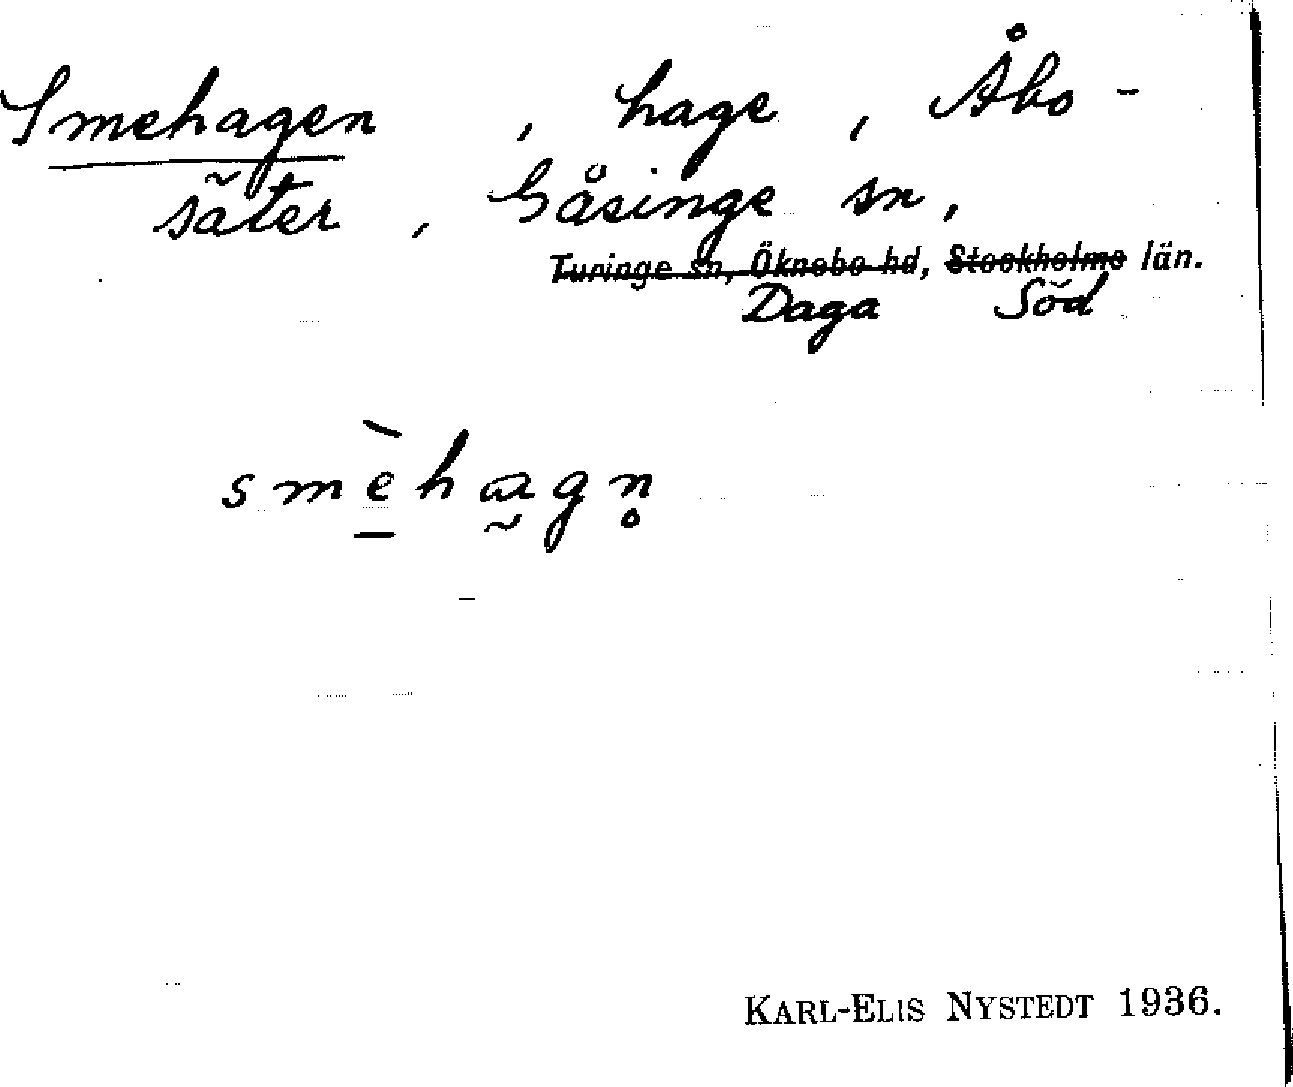 Smehagen, hage, Åbo-
säter, Gåsinge sn,
Turinge sn, Öknebo hd, Stockholms län.
Daga Söd
smèhagn̥
KARL-ELIS NYSTEDT 1936.